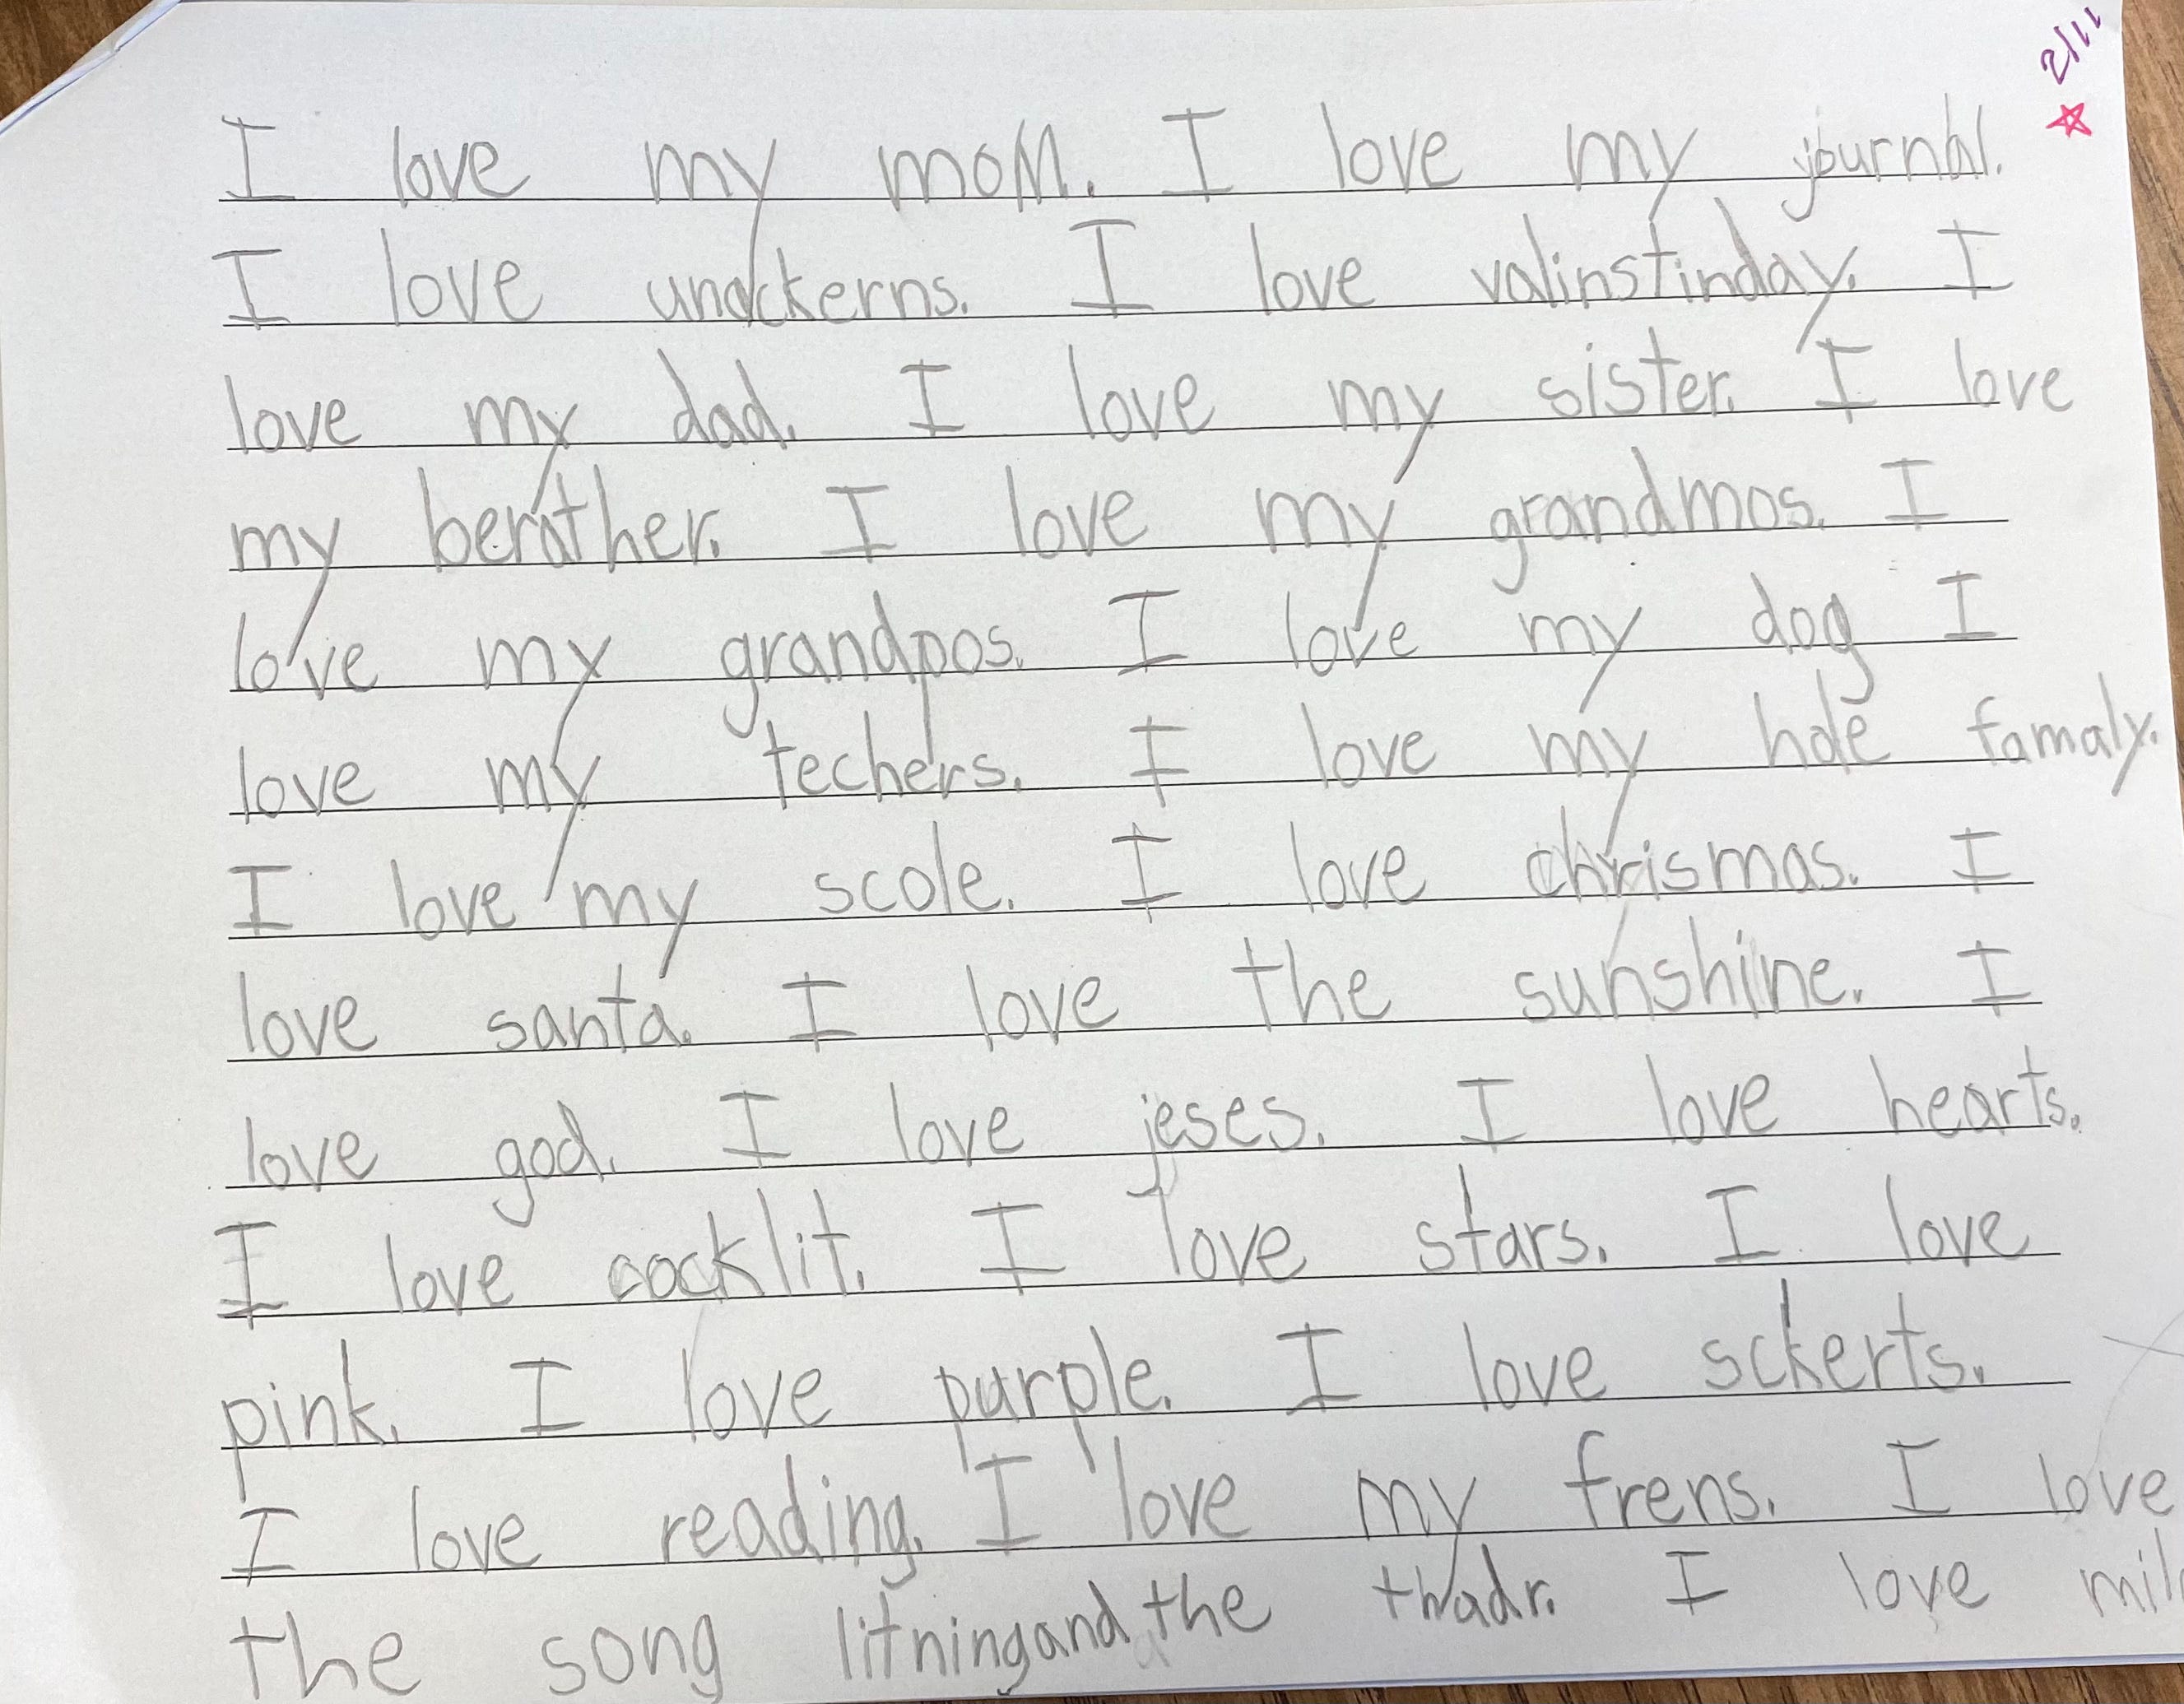 2/11
I love my mom. I love my journal.
I love unackerns. I love valinstinday. I
love my dad. I love my sister. I love
my berather. I love my grandmos. I
love my grandpos. I love my dog I
love my techers. I love my hole famaly.
I love my scole. I love chrismas. I
love santa. I love the sunshine. I
love god. I love jeses. I love hearts.
I love cocklit. I love stars. I love
pink. I love purple. I love sckerts.
I love reading. I love my frens. I love
the song litningand the thadr. I love